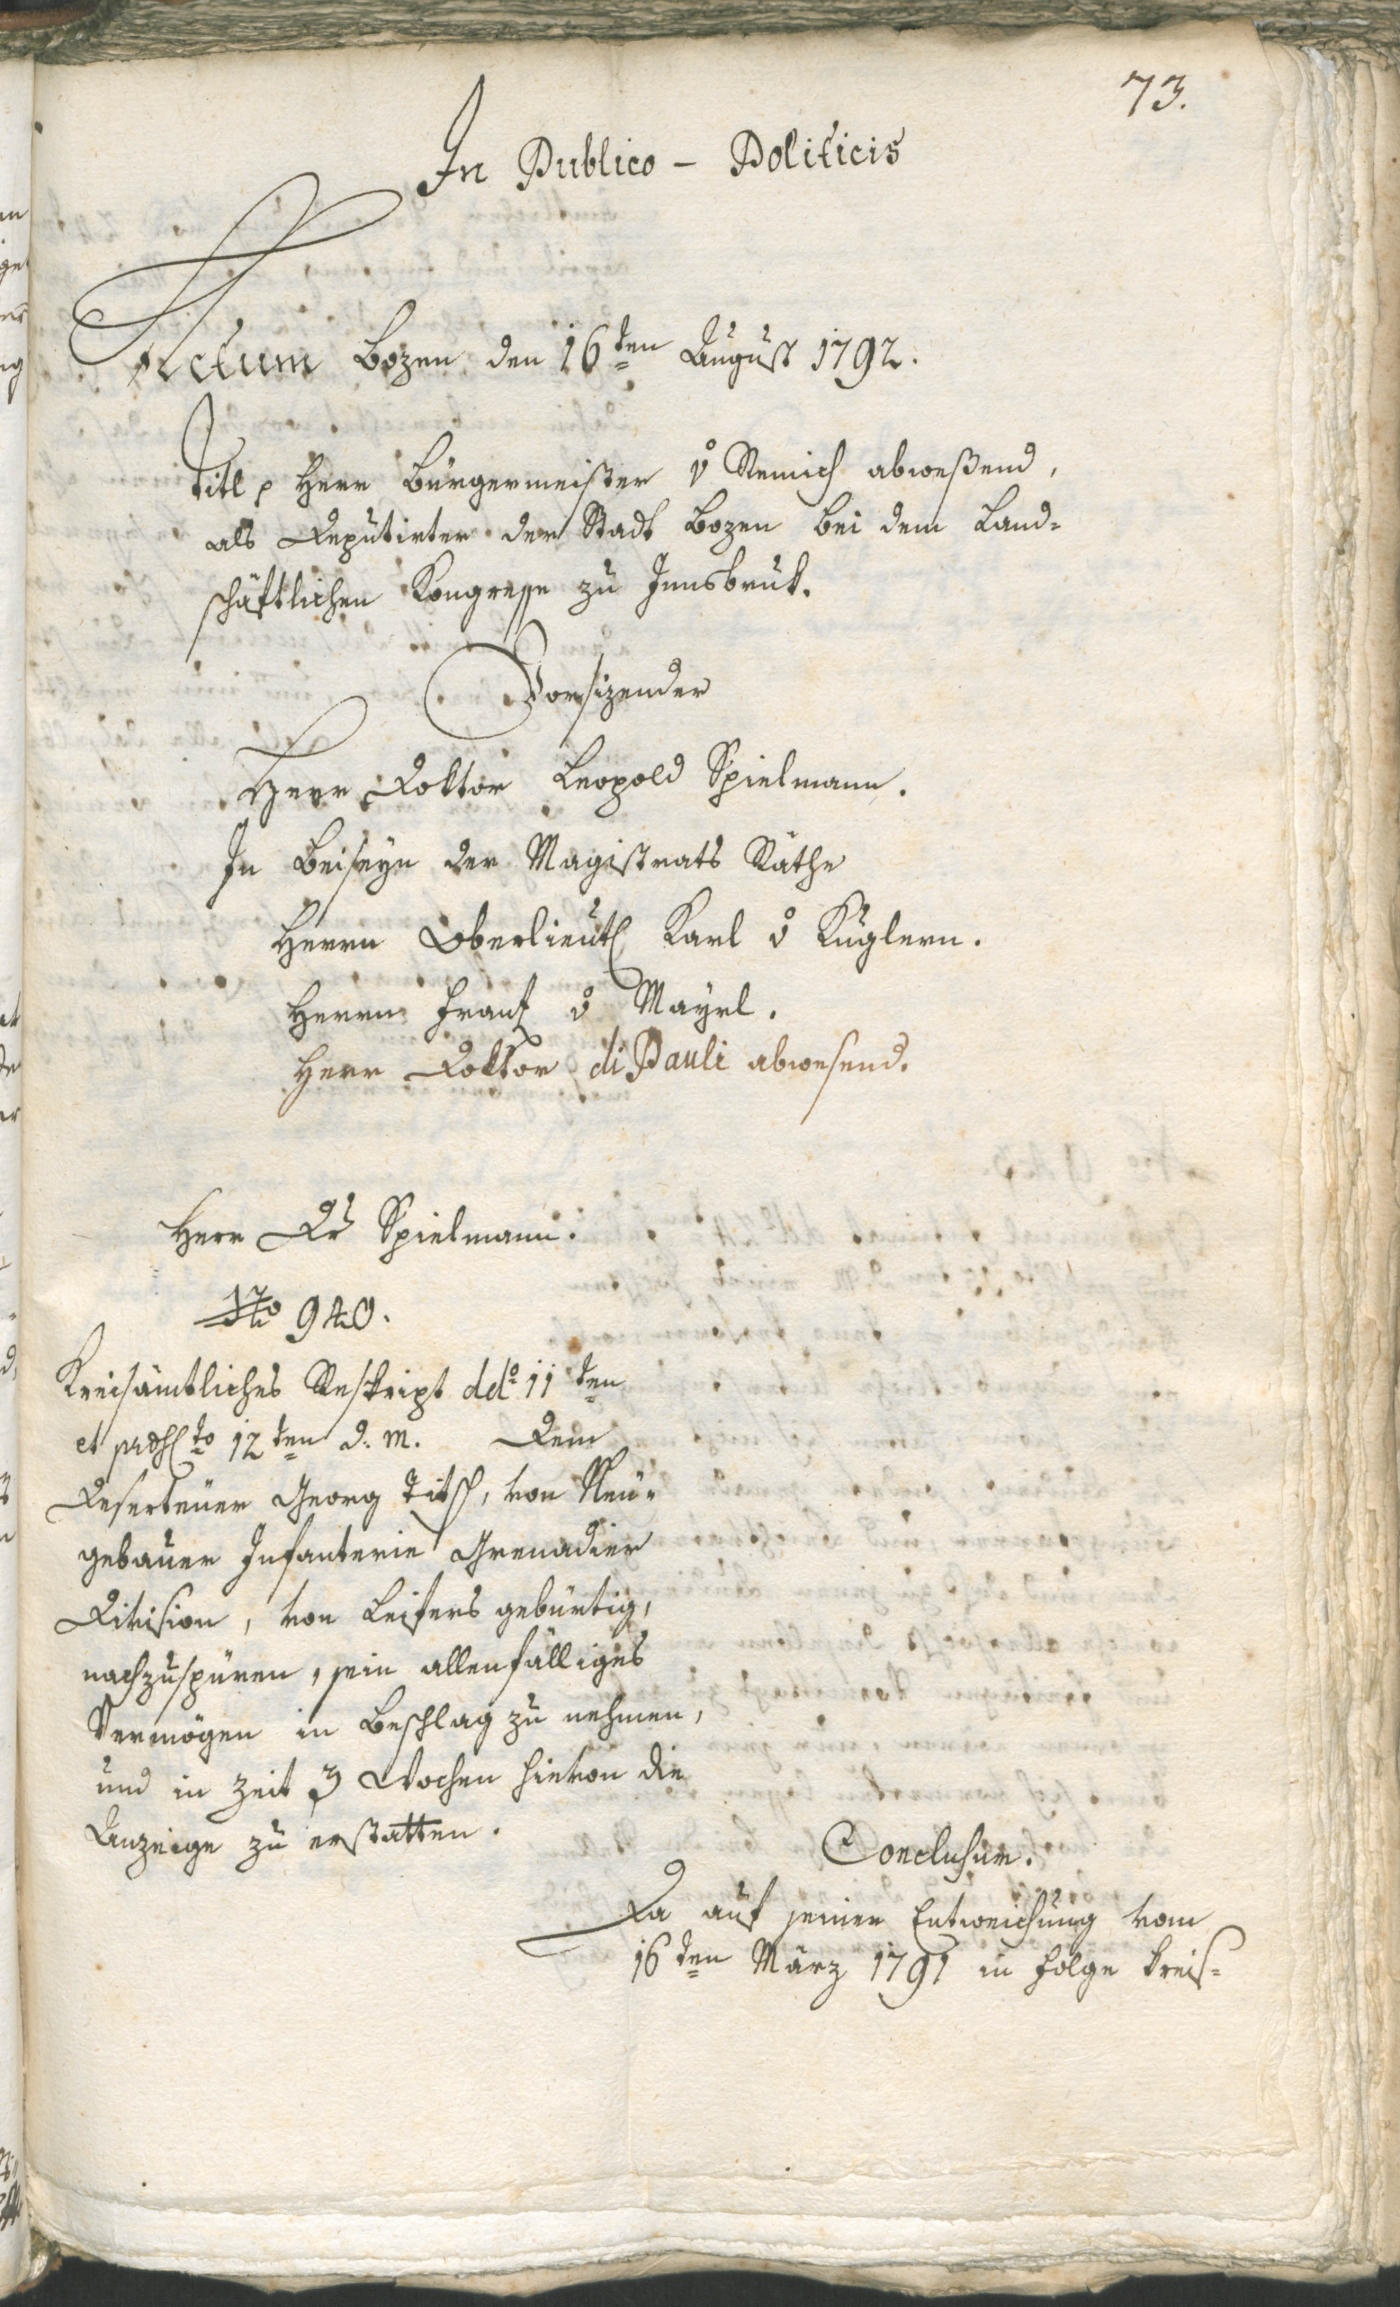 73.
In Publico - Politicis
Actum Bozen den 16ten August 1792.
Titl p Herr Bürgermeister v Remich abweßend,
als Deputirter der Stadt Bozen bei dem Land-
schäftlichen Kongresse zu Innsbruk.
Vorsizender
Herr Doktor Leopold Spielmann.
In Beiseyn der Magistrats Räthe
Herrn Oberlieut Karl v Kuglern.
Herrn Franz v Mayrl.
Herr Doktor di Pauli abwesend.
Herr Dr Spielmann.
No 940.
Kreisämtliches Reskript ddo 11ten
et to 12ten d. M. Dem
Deserteuer Georg Titsch, von Neu-
gebauer Infanterie Grenadier
Division, von Leifers gebürtig,
nachzuspüren, sein allenfälliges
Vermögen in Beschlag zu nehmen,
und in Zeit 3 Wochen hievon die
Anzeige zu erstatten.
Conclusum.
Da auf seiner Entweichung vom
16ten März 1791 in Folge kreis-